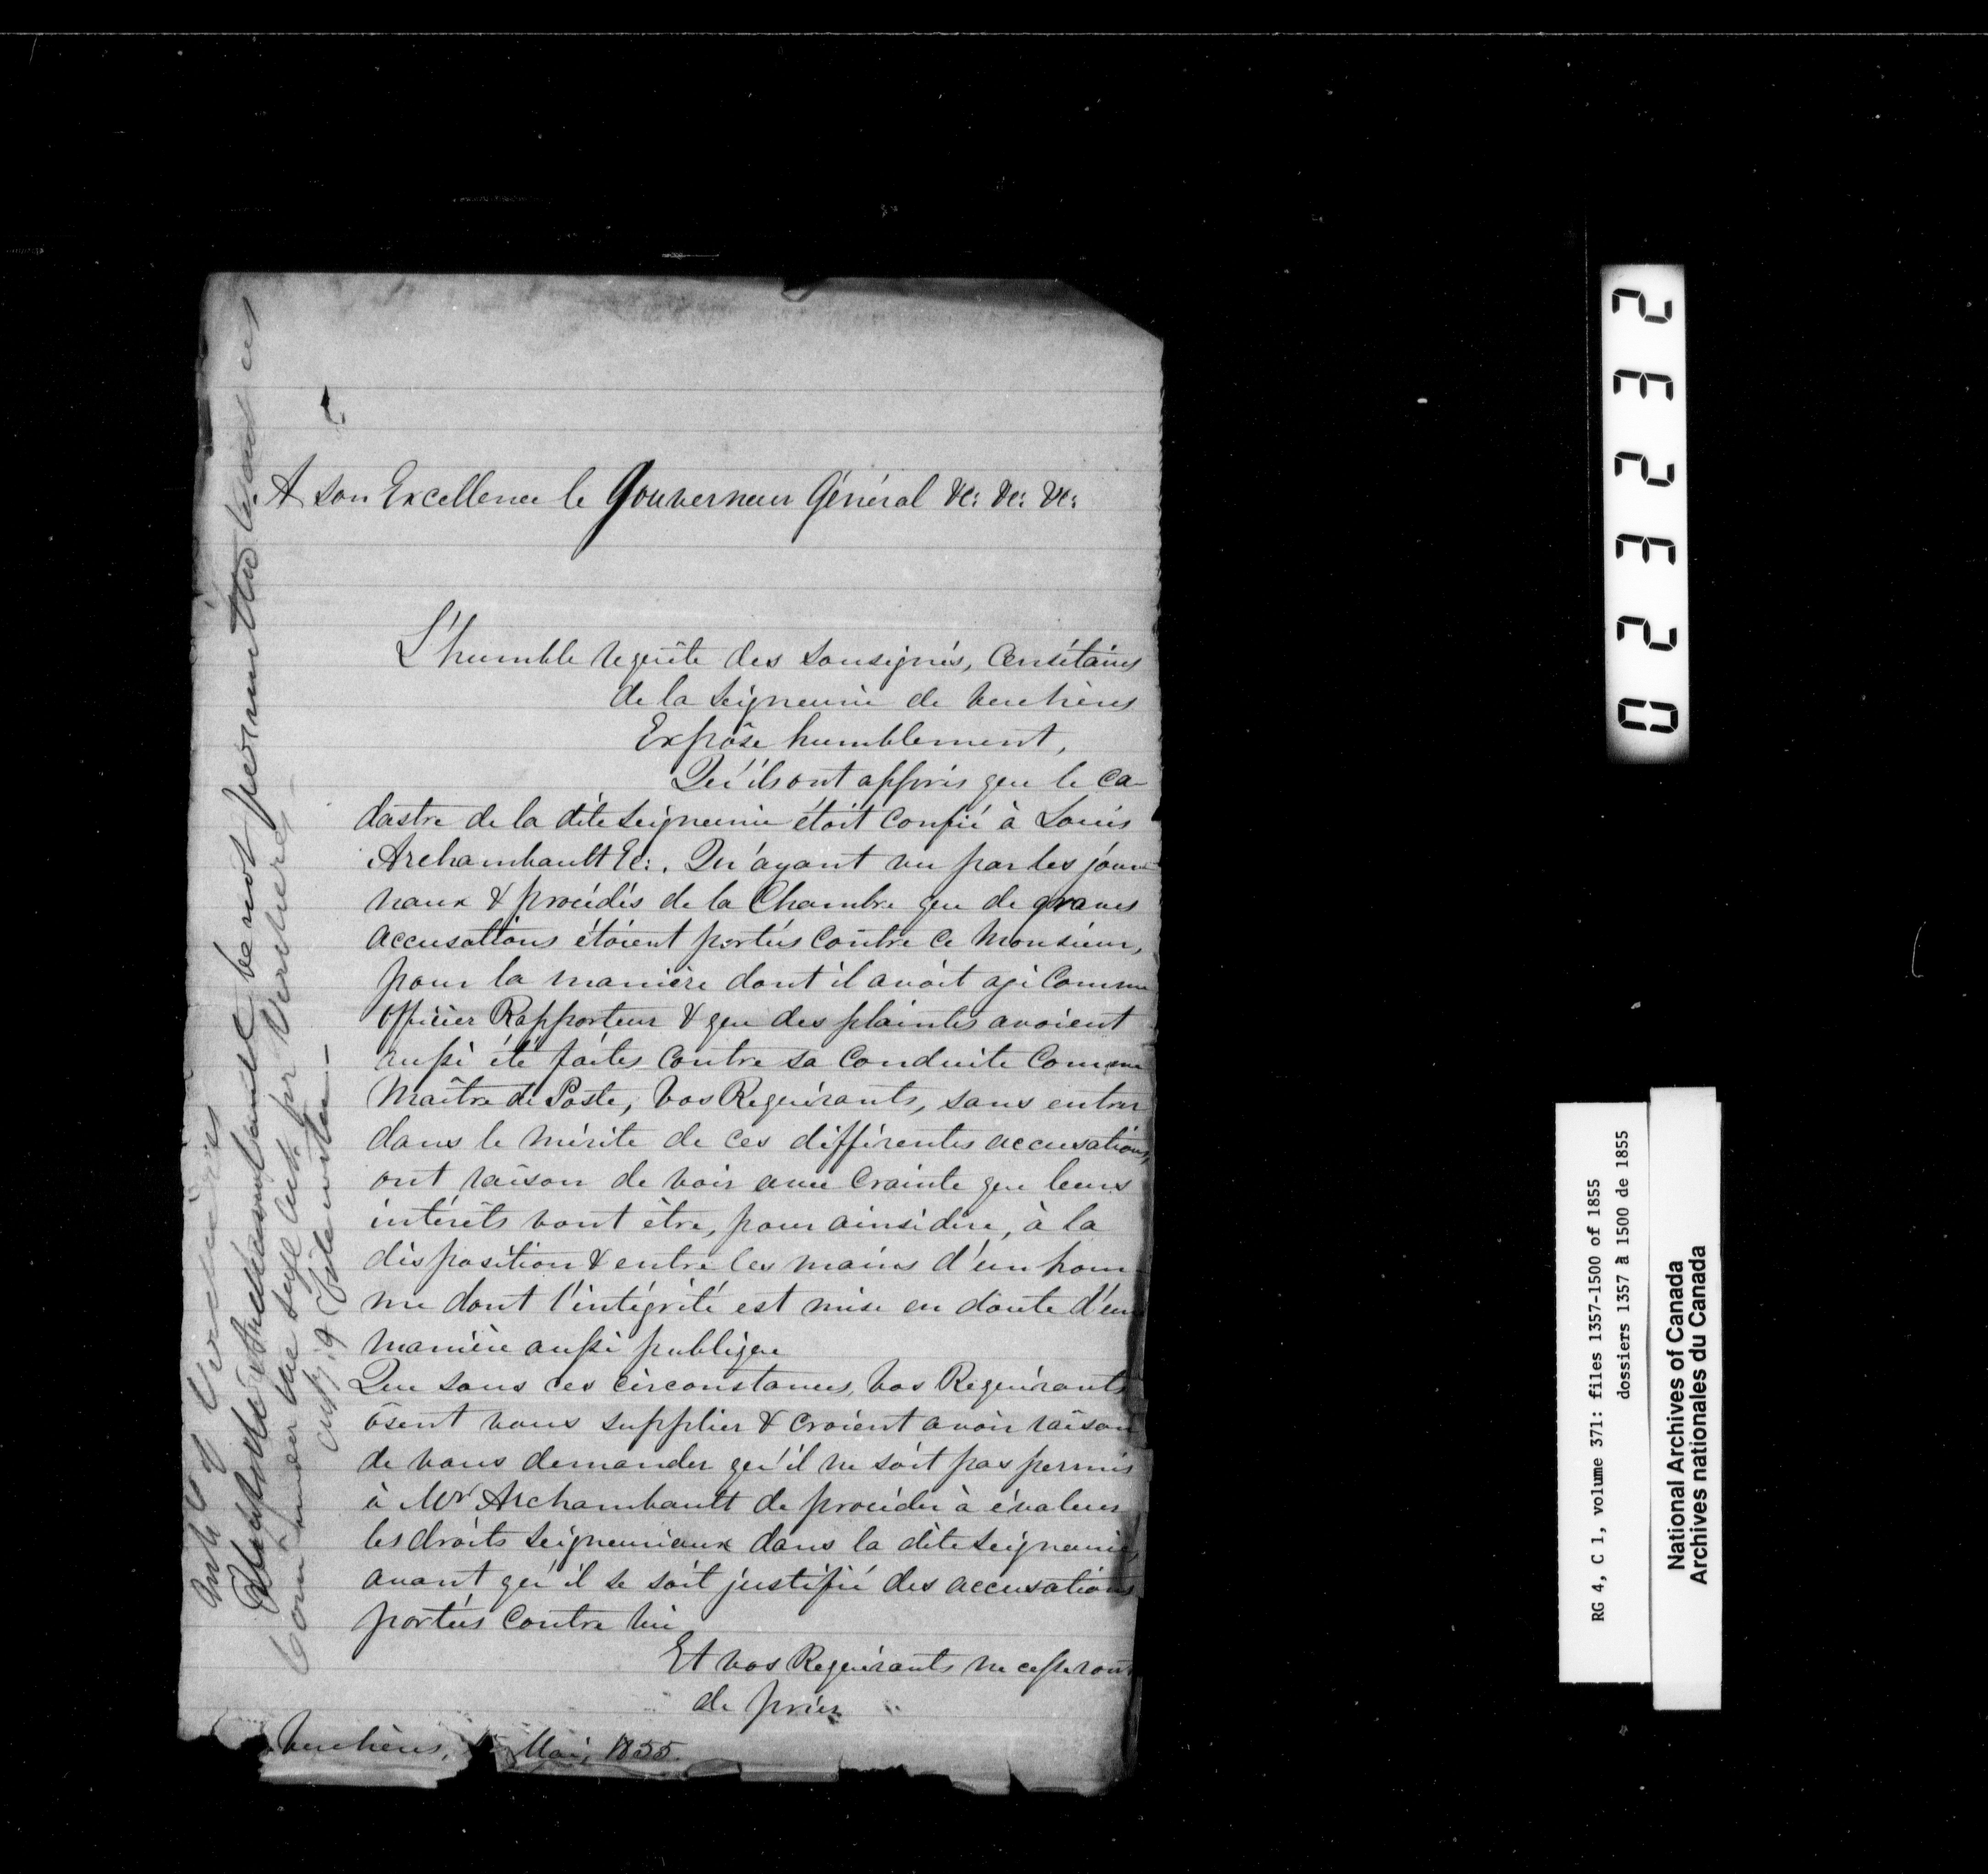 A son Excellence le Gouverneur Général &c: &c: &c:
L'humble requête des Sousignés, Censitaires
de la Seigneurie de Verchères
Expôse humblement,
Qu'ils ont appris que le Ca-
dastre de la dite Seigneurie étoit Confié à Louis
Archambault Ec:. Qu'ayant vu par les jour-
naux & procédés de la Chambre que de graves
accusations étoient portées Contre ce Monsieur,
pour la manière dont il avoit agi Comme
Officier Rapporteur & que des plaintes avoient
aussi été faites Contre sa Conduite Comme
Maître de Poste, Vos Requérants, sans entrer
dans le mérite de ces différentes accusations,
ont raison de voir avec Crainte que leurs
intérêts vont être, pour ainsi dire, à la
disposition & entre les mains d'un hom-
me dont l'intégrité est mise en doute d'une
manière aussi publique
Que sous ces circonstances, Vos Requérants
ôsent vous supplier & croient avoir raison
de vous demander qu'il ne soit pas permis
à Mr Archambault de procéder à évaluer
les droits Seigneuriaux dans la dite Seigneurie,
avant qu'il se soit justifié des accusations
portées Contre lui
Et vos Requérants ne cesseront
de prier
Verchères, Mai, 1855.
Verchères
Mr Archambault be not permitted to
for Verchères
23232 0
RG 4, C 1, volume 371: files 1357-1500 of 1855
dossiers 1357 à 1500 de 1855
National Archives of Canada
Archives nationales du Canada